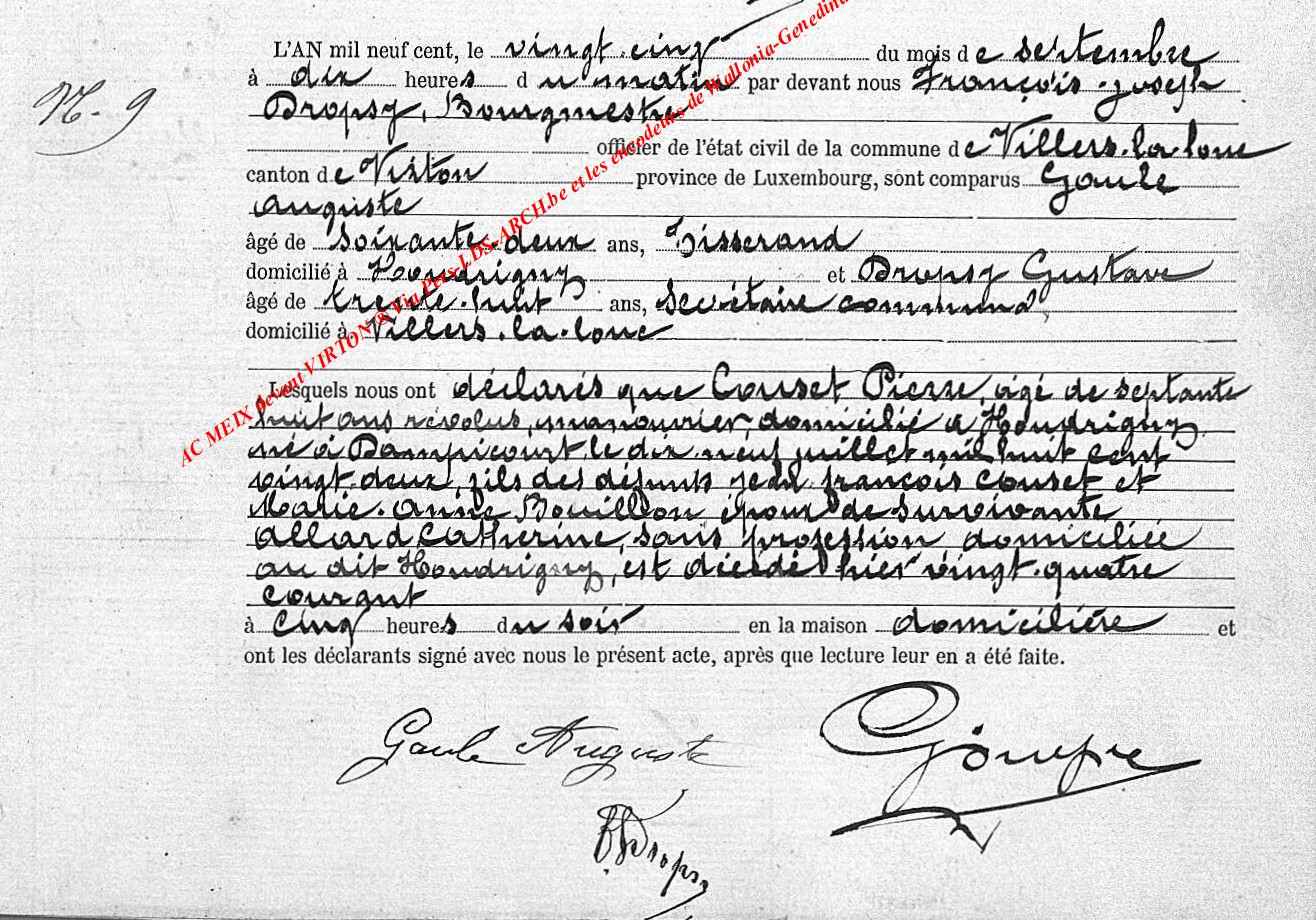 L'AN mil neuf cent, le vingt-cinq du mois de septembre
N. 9
à dix heures du matin par devant nous François-Joseph
Dropsy, Bourgmestre
officier de l'état civil de la commune de Villers-la-loue
canton de Virton province de Luxembourg, sont comparus Goule
Auguste
âgé de soixante-deux ans, Tisserand
domicilié à Houdrigny et Dropsy Gustave
âgé de trente-huit ans, secrétaire communal,
domicilié à Villers-la-loue
Lesquels nous ont déclarés que Couset Pierre, âgé de septante
huit ans révolus, manouvrier, domicilié à Houdrigny,
né à Dampicourt le dix neuf juillet mil huit cent
vingt-deux, fils des défunts jean françois Couset et
Marie-Anne Bouillon époux de survivante
Allard Catherine, sans profession domiciliée
au dit Houdrigny, est décédé hier vingt-quatre
courant
à cinq heures du soir en la maison domicilière et
ont les déclarants signé avec nous le présent acte, après que lecture leur en a été faite.
Goule Auguste
Dropsy
AC MEIX devant VIRTON & Via Pers-LDS-ARCH.be et les encodeurs de Wallonia-Genedina